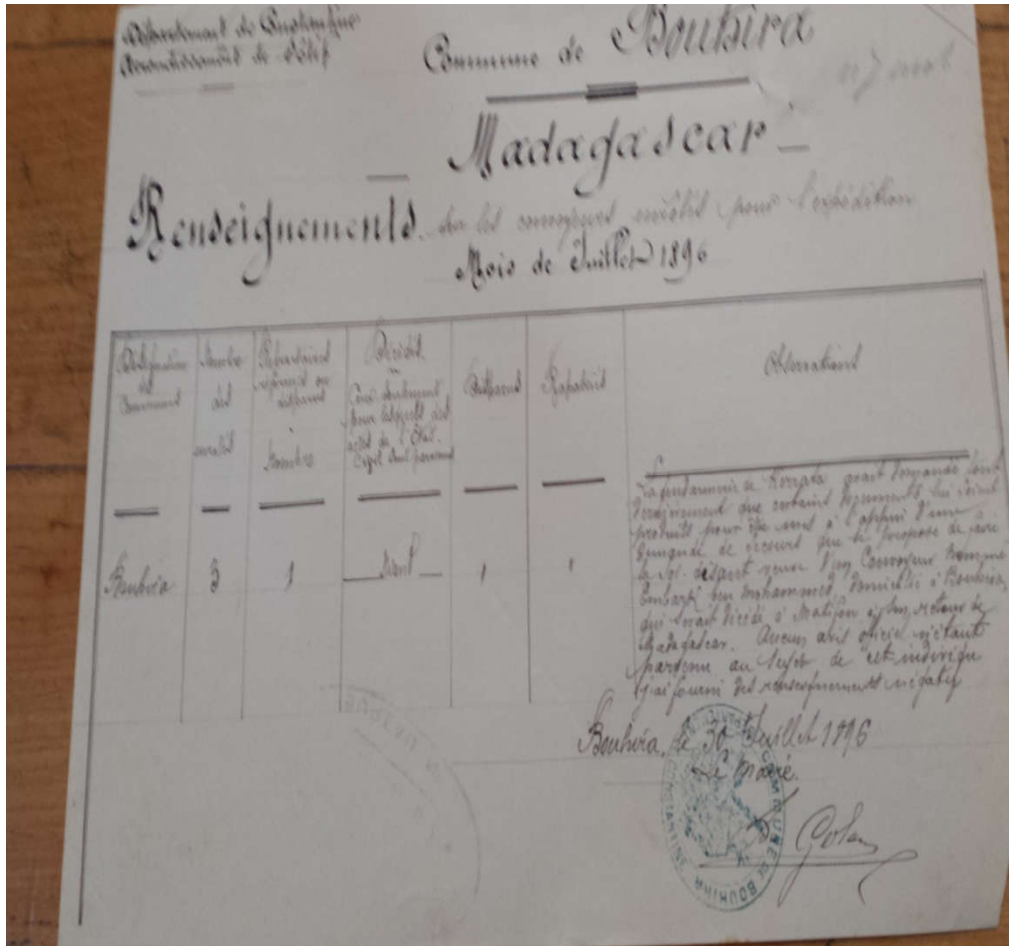 Département de Constantine
Arrondissement de Sétif
Commune de Bouhira
Madagascar
Renseignements sur les convoyeurs enrôlés pour l'expédition
Mois de Juillet 1896
Désignation
de
Communes
Nombre
des
enrolés
Réfractaires
disparus
Nombre
Décédés
Ceux seulement
pour lesquels des
actes de l'État
Civil sont parvenus
Disparus
Rapatriés
Observations
Bouhira
3
1
Néant
1
1
La gendarmerie de Kerrata ayant demandé tout
dernièrement que certains documents lui soient
produits pour être mis à l'appui d'une
demande de secours que se propose de faire
la soi-disant veuve d'un Convoyeur nommé
Embarck ben Mohammed, domicilié à Bouhira,
qui serait décédé à Matifou à son retour de
Madagascar. Aucun avis officiel n'étant
parvenu au sujet de cet individu
j'ai fourni des renseignements négatifs
Bouhira, le 30 Juillet 1896
Le Maire.
COMMUNE DE BOUHIRA
CONSTANTINE